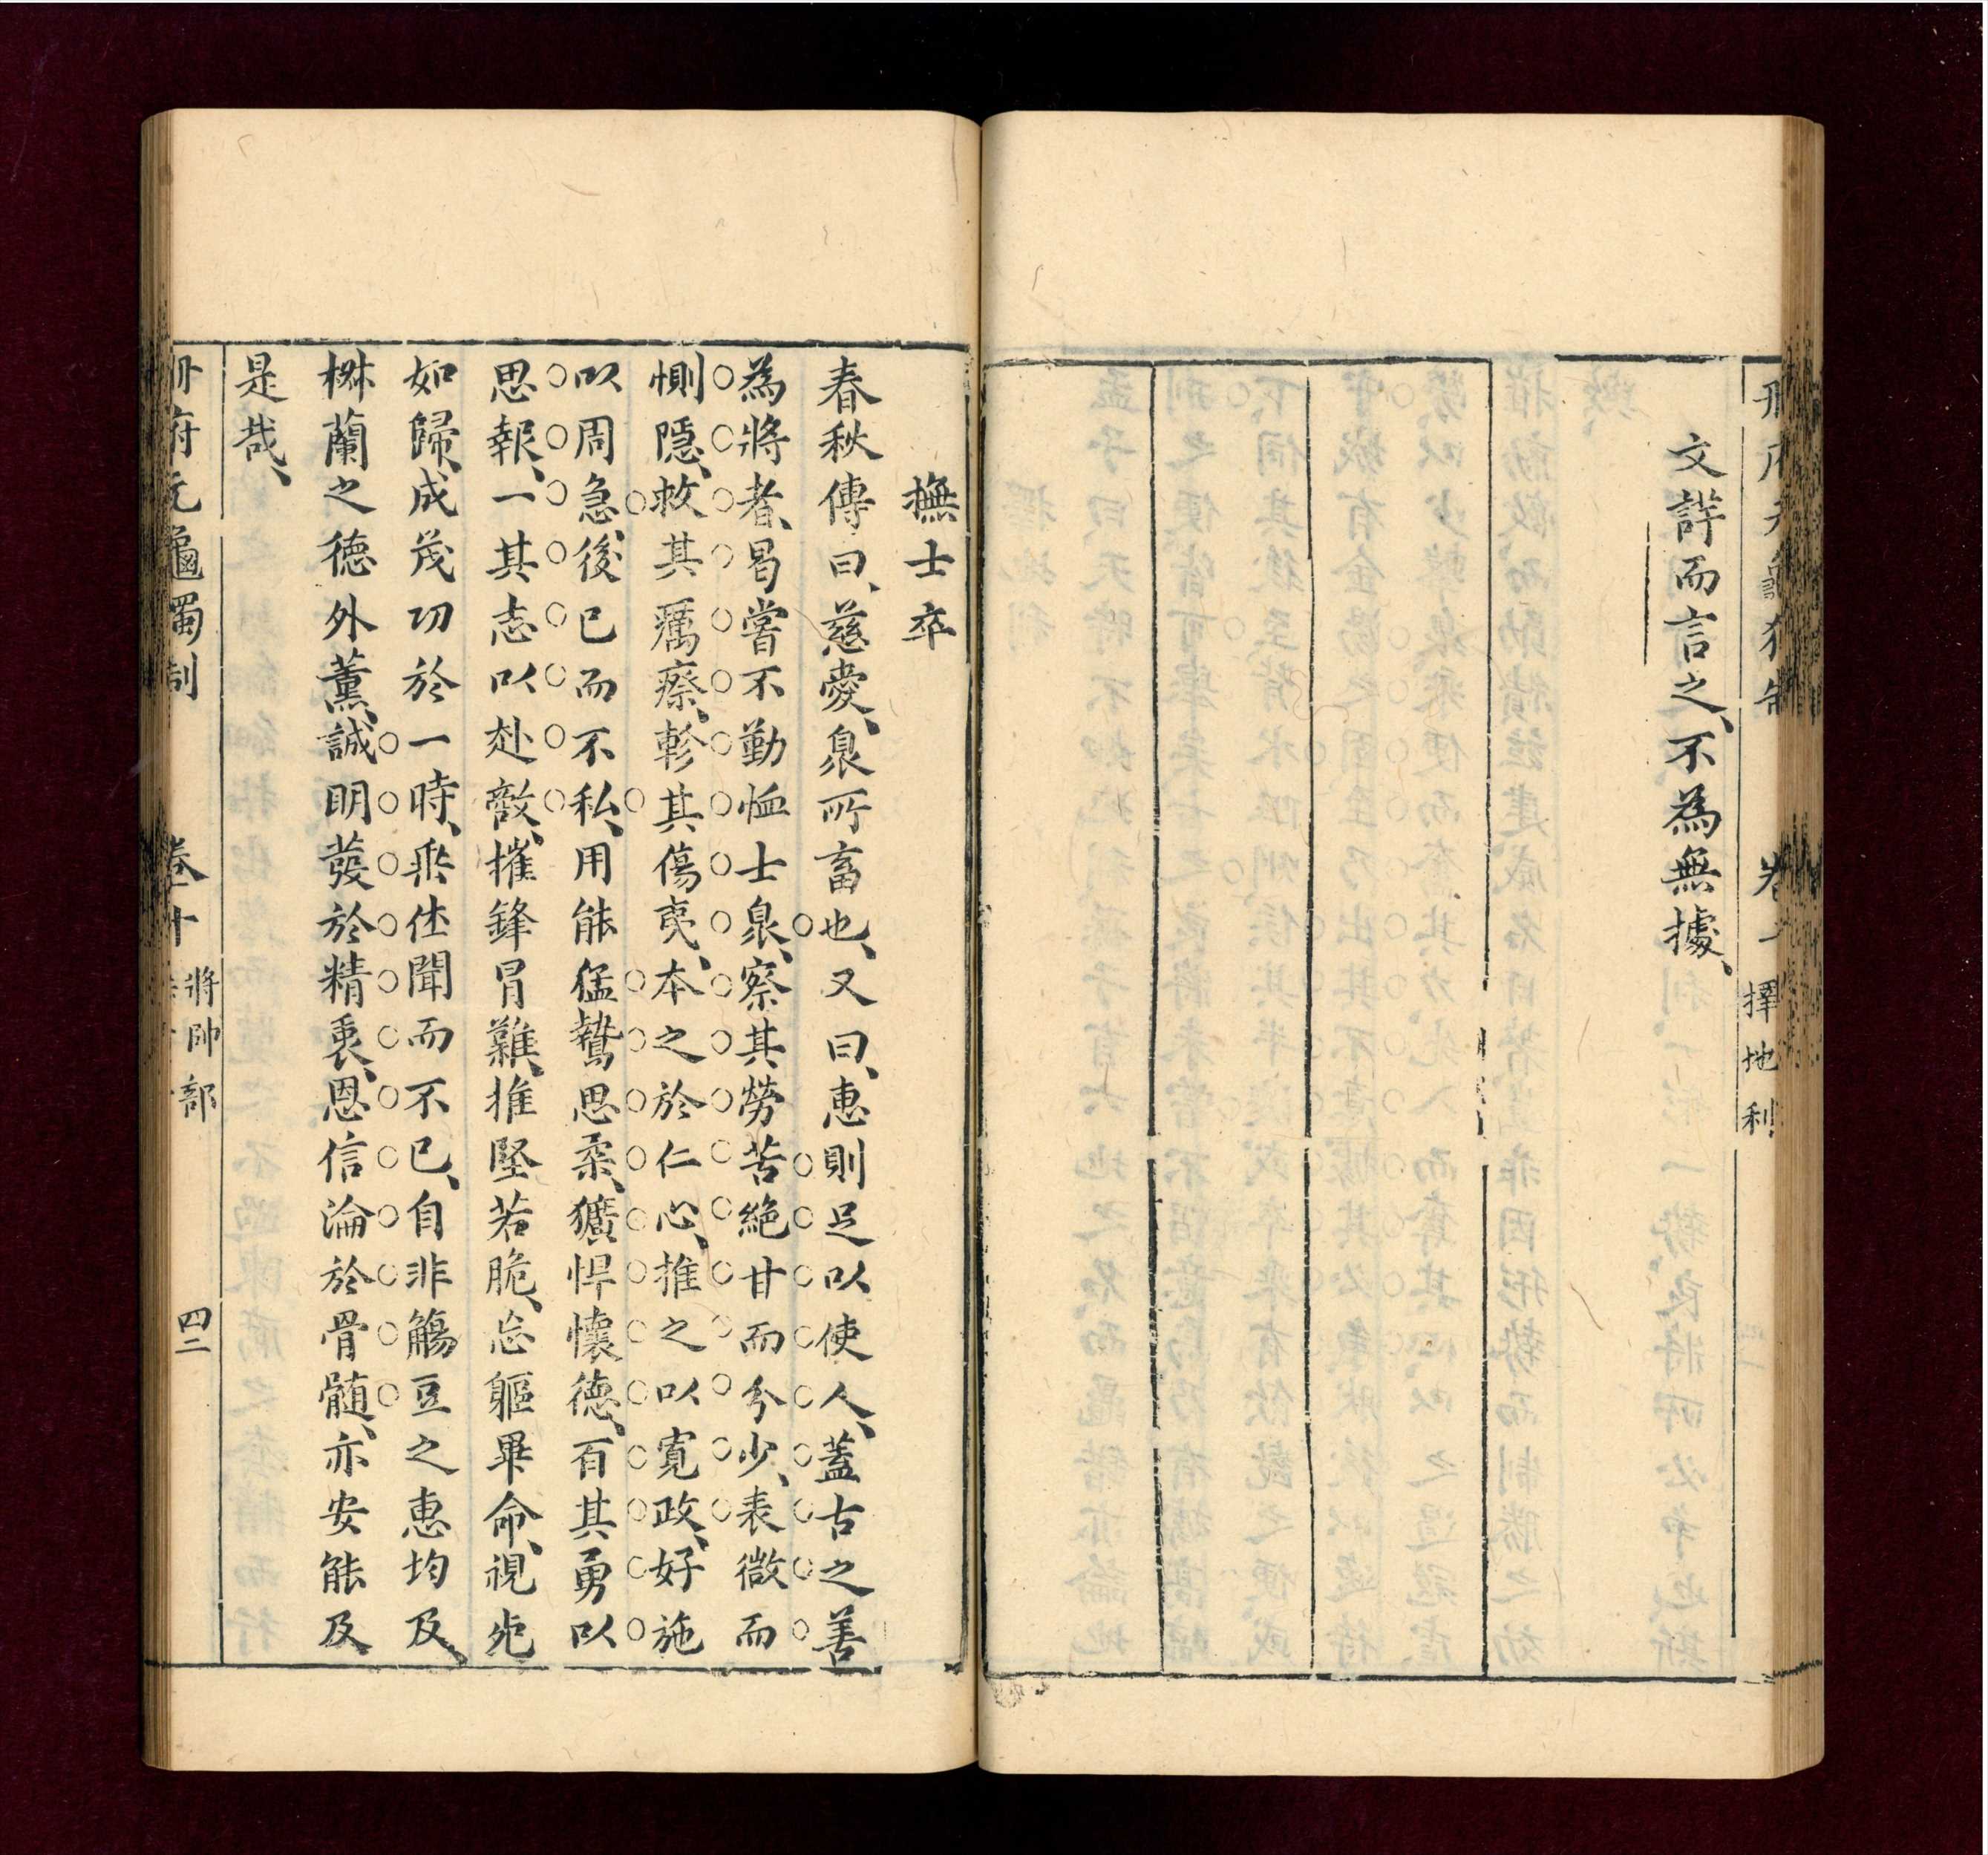 擇地利
文誶而言之、不為無據、
撫士卒
春秋傳曰、慈愛、㐺所畜也、又曰、惠則足以使人、蓋古之善
為將者、曷嘗不勤恤士㐺、察其勞苦絶甘而分少、表微而
惻隱、救其癘瘵、軫其傷夷、本之於仁心、推之以寬政、好施
以周急、後已而不私、用能猛鷙思柔、獷悍懷德、百其勇以
思報、一其志以赴敵、摧鋒冐難、推堅若脆、忘軀畢命、視死
如歸、成茂功於一時、垂休聞而不已、自非觴豆之惠均及、
椒蘭之德外薰、誠明發於精衷、恩信淪於骨髓、亦安能及
是哉、
冊府元龜獨制
卷十
將帥部
四二